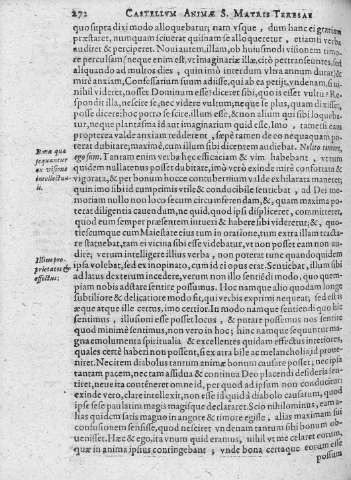 272 CASTELLVM ANIMÆ S. MATRIS TERESAE
quo supra dixi modo alloquebatur, nam vsque, dum hanc ei gratiam
præstaret, numquam sciebat quisnam se alloqueretur, etiamsi verba
audiret & perciperet. Noui autem, illam, ob huiusmodi visionem timo-
re perculsam (neque enim est, vt imaginariæ illæ, citò pertranseuntes, sed
aliquando ad multos dies, quin imò interdum vltra annum durat) &
mirè anxiam, Confessarium suum adiisse, qui ab ea petijt, vndenam, si ni-
hil videret, nosset Dominum esse? diceret sibi, quo is esset vultu? Res-
pondit illa, nescire se, nec videre vultum; neque se plus, quam dixisset,
posse dicere: hoc porro se scire, illum esse, & non alium qui sibi loqueba-
tur, neque phantasma id aut imaginarium quid esse. Imo, tametsi eam
propterea valde anxiam redderent, sæpè tamen de eo nequaquam po-
terat dubitare; maximè, cum illum sibi dicentem audiebat. Nolite timere,
ego sum. Tantam enim verba hæc efficaciam & vim habebant, vt tum
quidem nullatenus posset dubitare, imò verò exinde mirè confortata &
vigorata, & per bonum hocce contubernium valde exhilarata maneret;
quin imo sibi id cumprimis vtile & conducibile sentiebat, ad Dei me-
moriam nullo non loco secum circumferendam, &, quam maxima po-
terat diligentia cauendum, ne quid, quod ipsi displiceret, committeret,
quod eum semper præsentem intueri & habere sibi videretur; &, quo-
tiescumque cum Maiestate eius tum in oratione, tum extra illam tracta-
re statuebat, tam ei vicina sibi esse videbatur, vt non posset eam non au-
dire; verum intelligere illius verba, non poterat tunc quandoquidem
ipsa volebat, sed ex inopinato, cum id ei opus erat. Sentiebat, illum sibi
ad latus dextrum incedere, verum non illo sentiẽdi modo, quo quem-
piam nobis adstare sentire possumus. Hoc namque alio quodam longe
subtiliore & delicatiore modo fit, qui verbis exprimi nequeat, sed est is
æque atque ille certus, imo certior. In modo namque sentiendo quo hic
sentimus, illusioni esse posset locus, & putare possumus nos sentire
quod minimè sentimus, non vero in hoc; hinc namque sequuntur ma-
gna emolumenta spiritualia & excellentes quidam effectus interiores,
quales certè haberi non possent, si ex atra bile ac melancholia, id proue-
niret. Nec item diabolus tantum animæ bonum causare posset; nec ipsa
tantam pacem, nec tam assidua & continua Deo placendi desideria sen-
tiret, neue ita contẽneret omne id, per quod ad ipsum non conducitur:
exinde vero, clare intellexit, non esse id quid à diabolo causatum, quod
ipse sese paulatim magis magisque declararet. Scio nihilominus, eam a-
lias quidem satis magno in angore & timore egisse, alias maximam sui
confusionem sensisse, quod nesciret vndenam tantum sibi bonum ob-
uenisset. Hæc & ego, ita vnum quid eramus, nihil vt me celaret eorum,
quæ in anima ipsius contingebant; vnde bona certaque eorum esse
possum
Bona quæ
sequuntur
ex visione
intellectua-
li.
Illius pro-
prietates &
effectus: